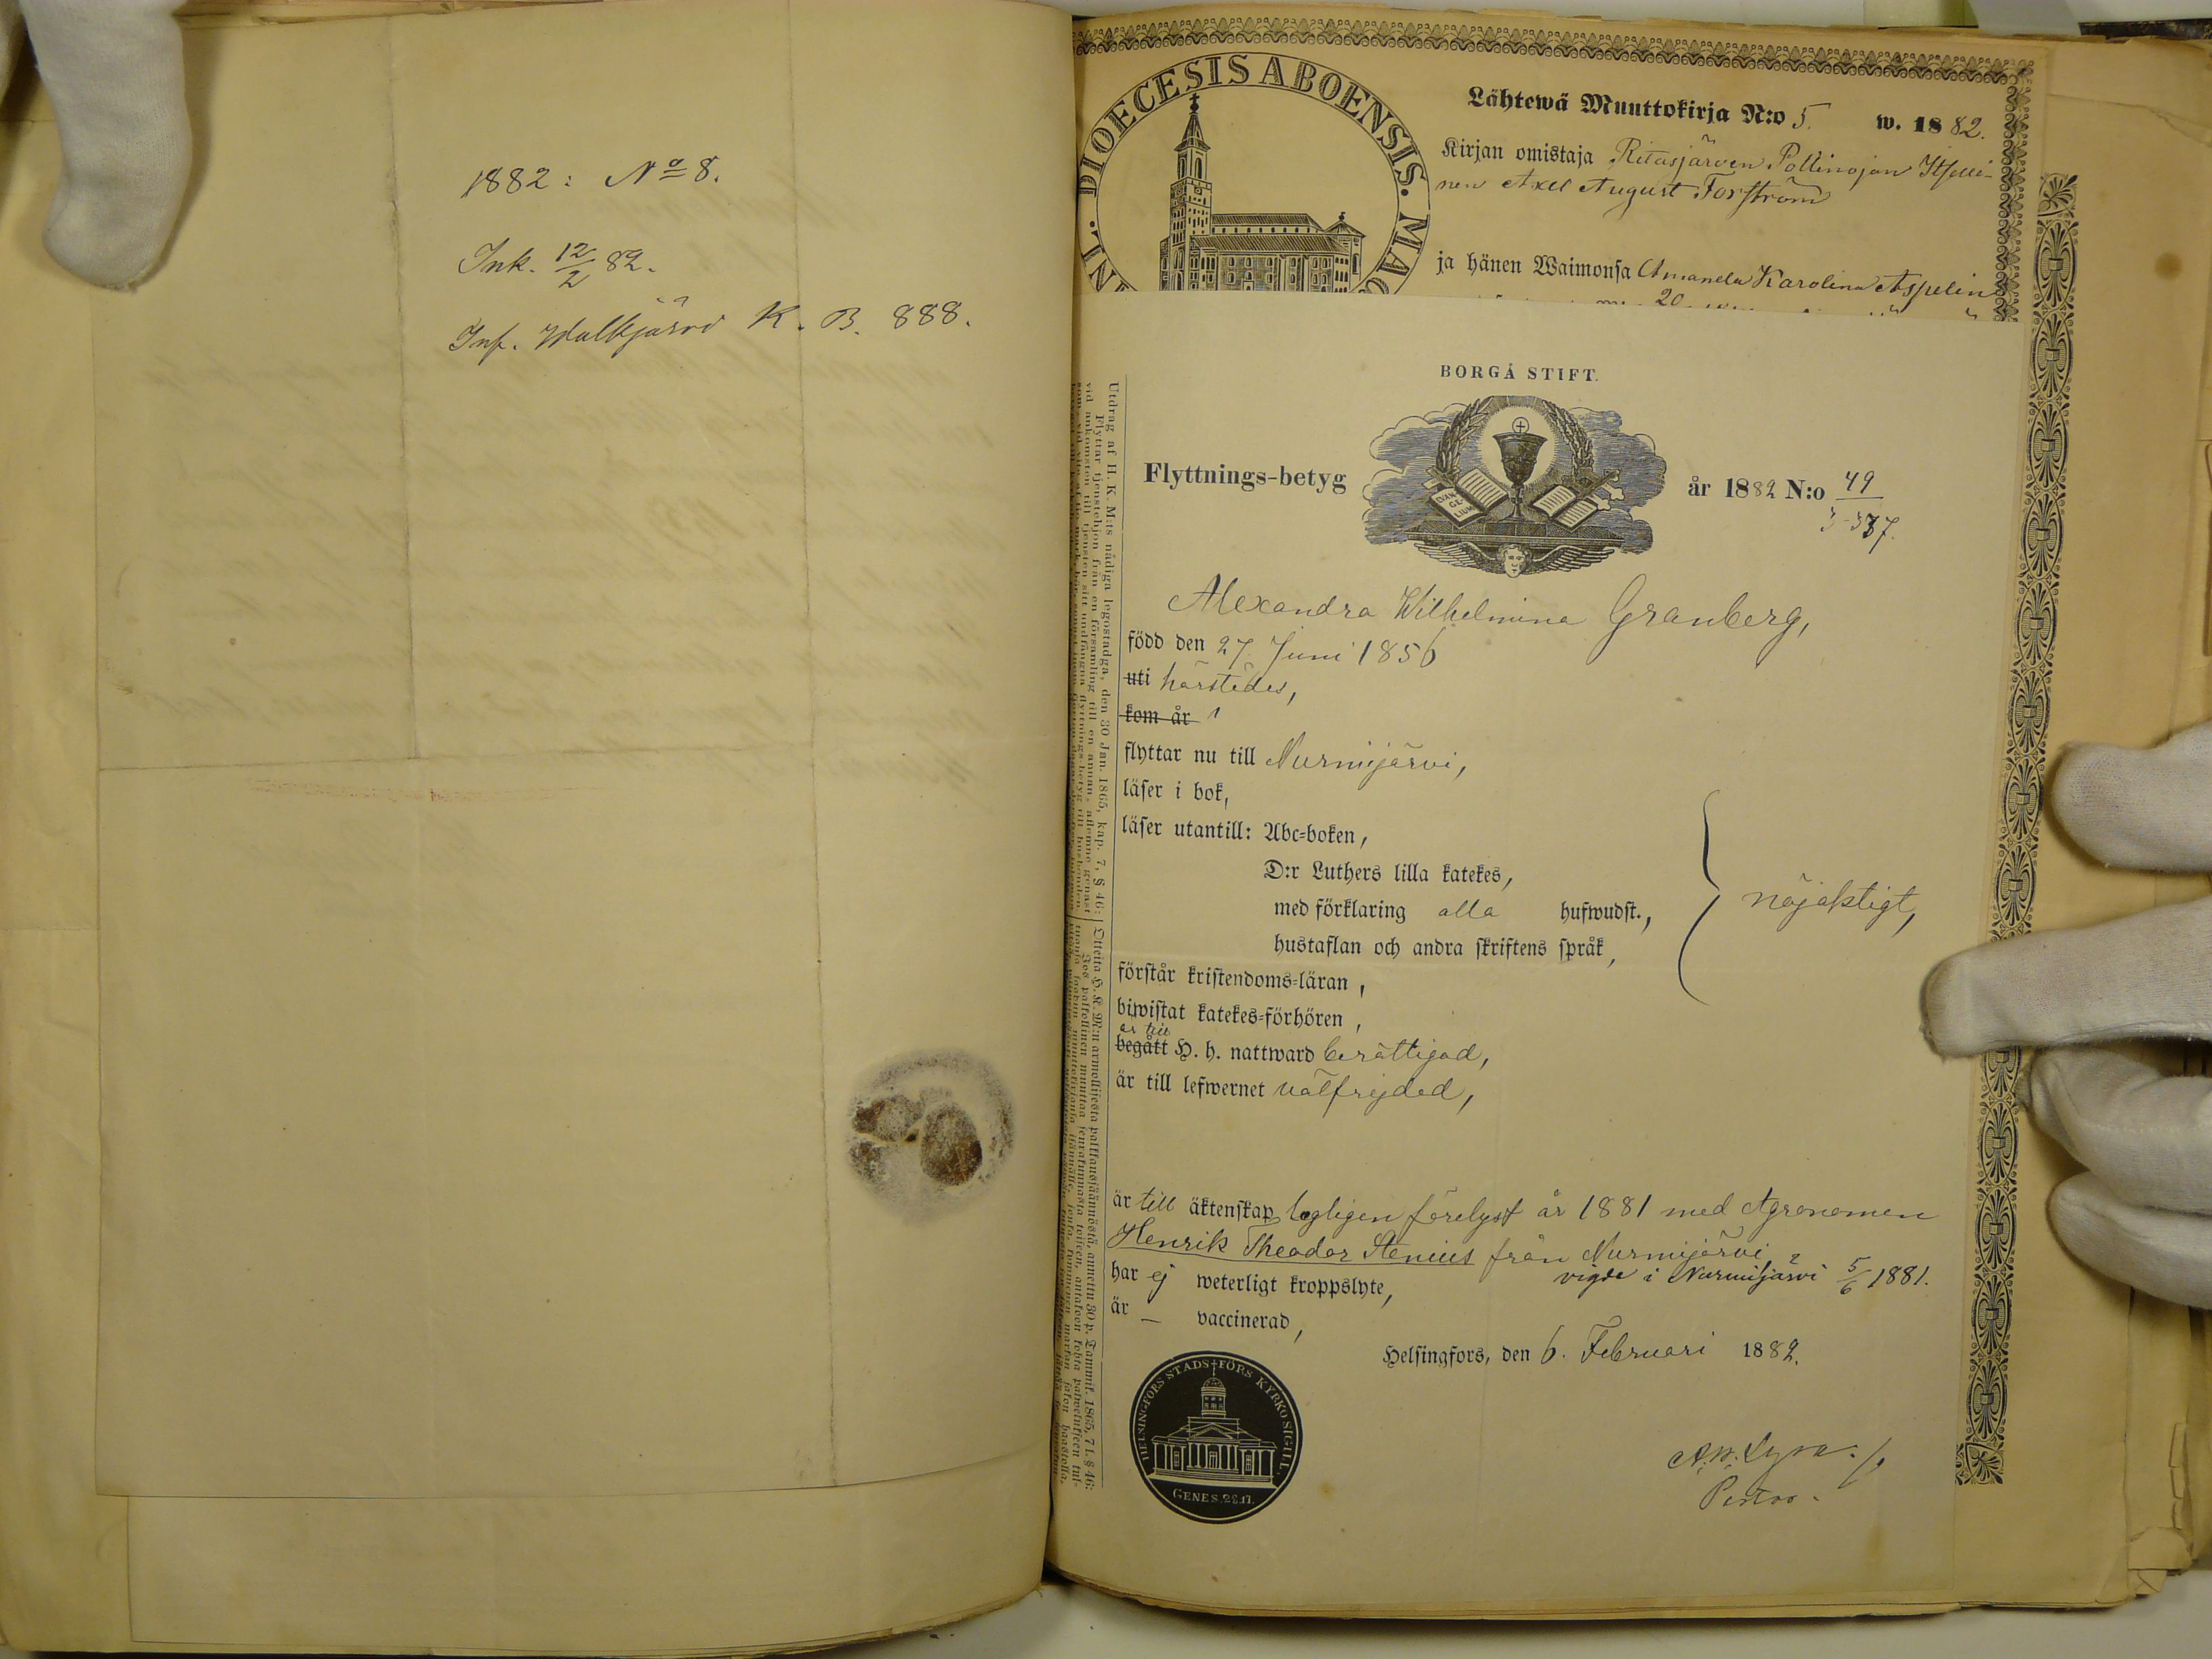 1882: No 8.
Ink. 12/2 82.
Inf. Walkjärvi K. B. 888.
DIOECESIS ABOENSIS. MAG
Lähtewä Muuttokirja N:o 5. w. 1882.
Kirjan omistaja Ritasjärven Pollinojan Itselli-
nen Axel August Forsström
ja hänen Waimonsa Amanda Karolina Aspelin
20
BORGÅ STIFT.
EVAN-
GE-
LIUM
Flyttnings-betyg år 1882 N:o 49
Alexandra Wilhelmina Granberg,
född den 27 Juni 1856
uti härstädes,
kom år
flyttar nu till Nurmijärvi,
läser i bok,
läser utantill: Abc-boken,
D:r Luthers lilla katekes,
med förklaring alla hufwudst.,
nöjaktigt,
hustaflan och andra skriftens språk,
förstår kristendoms-läran,
biwistat katekes-förhören,
är till
begått H. h. nattward berättigad,
är till lefwernet välfrejdad,
är till äktenskap lagligen förelyst år 1881 med Agronomen
Henrik Theodor Stenius från Nurmijärvi,
vigde i Nurmijärvi 5/6 1881.
har ej weterligt kroppslyte,
är — vaccinerad,
Helsingfors, den 6. Februari 1882.
Pastor.
HELSINGFORS STADS FÖRS KYRKO SIGILL.
GENES. 28.17.
Utdrag af H. K. M:ts nådiga legostadga, den 30 Jan. 1865, kap. 7, § 46:
Flyttar tjenstehjon från en församling till en annan, aflemne genast
vid ankomsten till tjensten sitt undfångna flyttnings-betyg till husbonden,
Otteita H. K. M:n armollisesta palkkausjäännöstä, annettu 30 p. Tammik. 1865, 7 l. § 46: